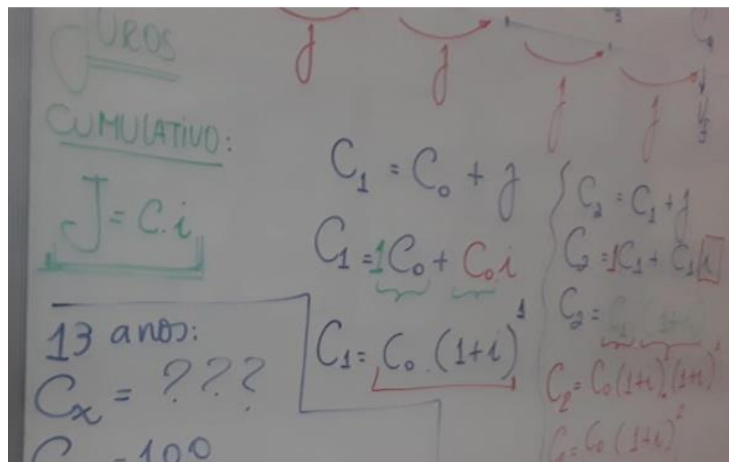 JUROS
CUMULATIVO:
J = C.i
13 anos:
Cx = ???
C = 100
j j j j
C1 = C0 + j
C1 = 1C0 + C0.i
C1 = C0.(1+i)^1
C2 = C1 + j
C2 = 1C1 + C1 i
C2 = C1 (1+i)
C2 = C0(1+i)^1.(1+i)^1
C2 = C0 (1+i)^2